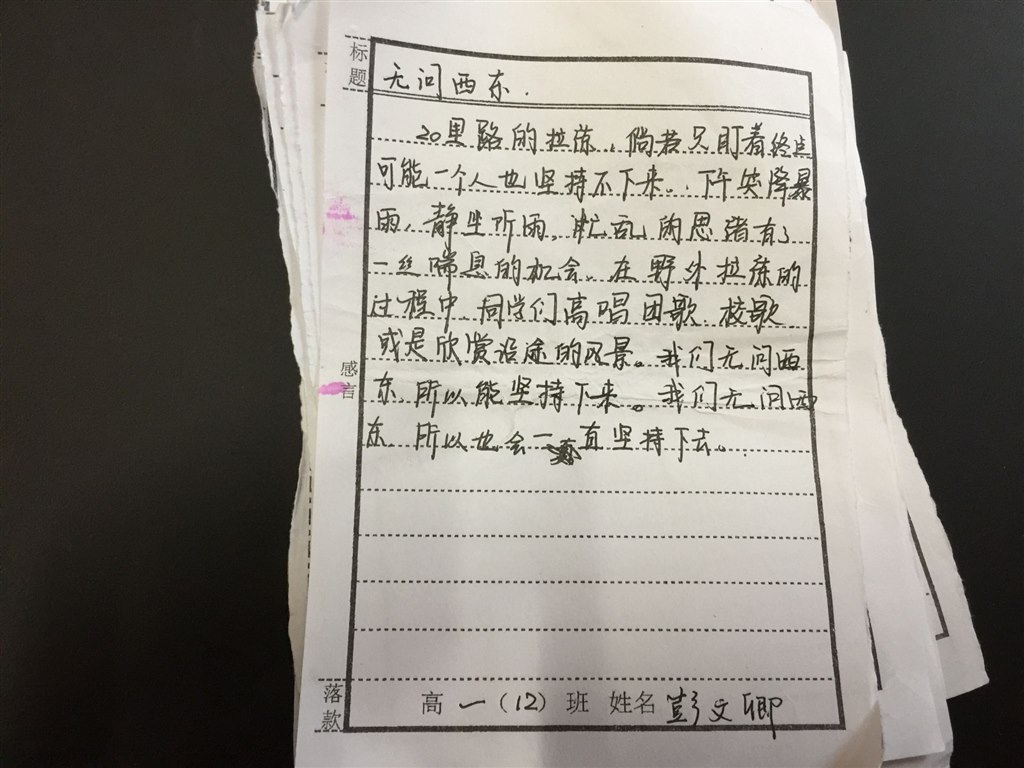 标题
无问西东.
20里路的拉练,倘若只盯着终点
可能一个人也坚持不下来。下午突降暴
雨,静坐听雨,忙乱间思绪有了
一丝喘息的机会。在野外拉练的
过程中,同学们高唱团歌、校歌
或是欣赏沿途的风景。我们无问西
东,所以能坚持下来。我们无问西
东,所以也会一直坚持下去。
感言
落款
高一(12)班 姓名 彭文卿